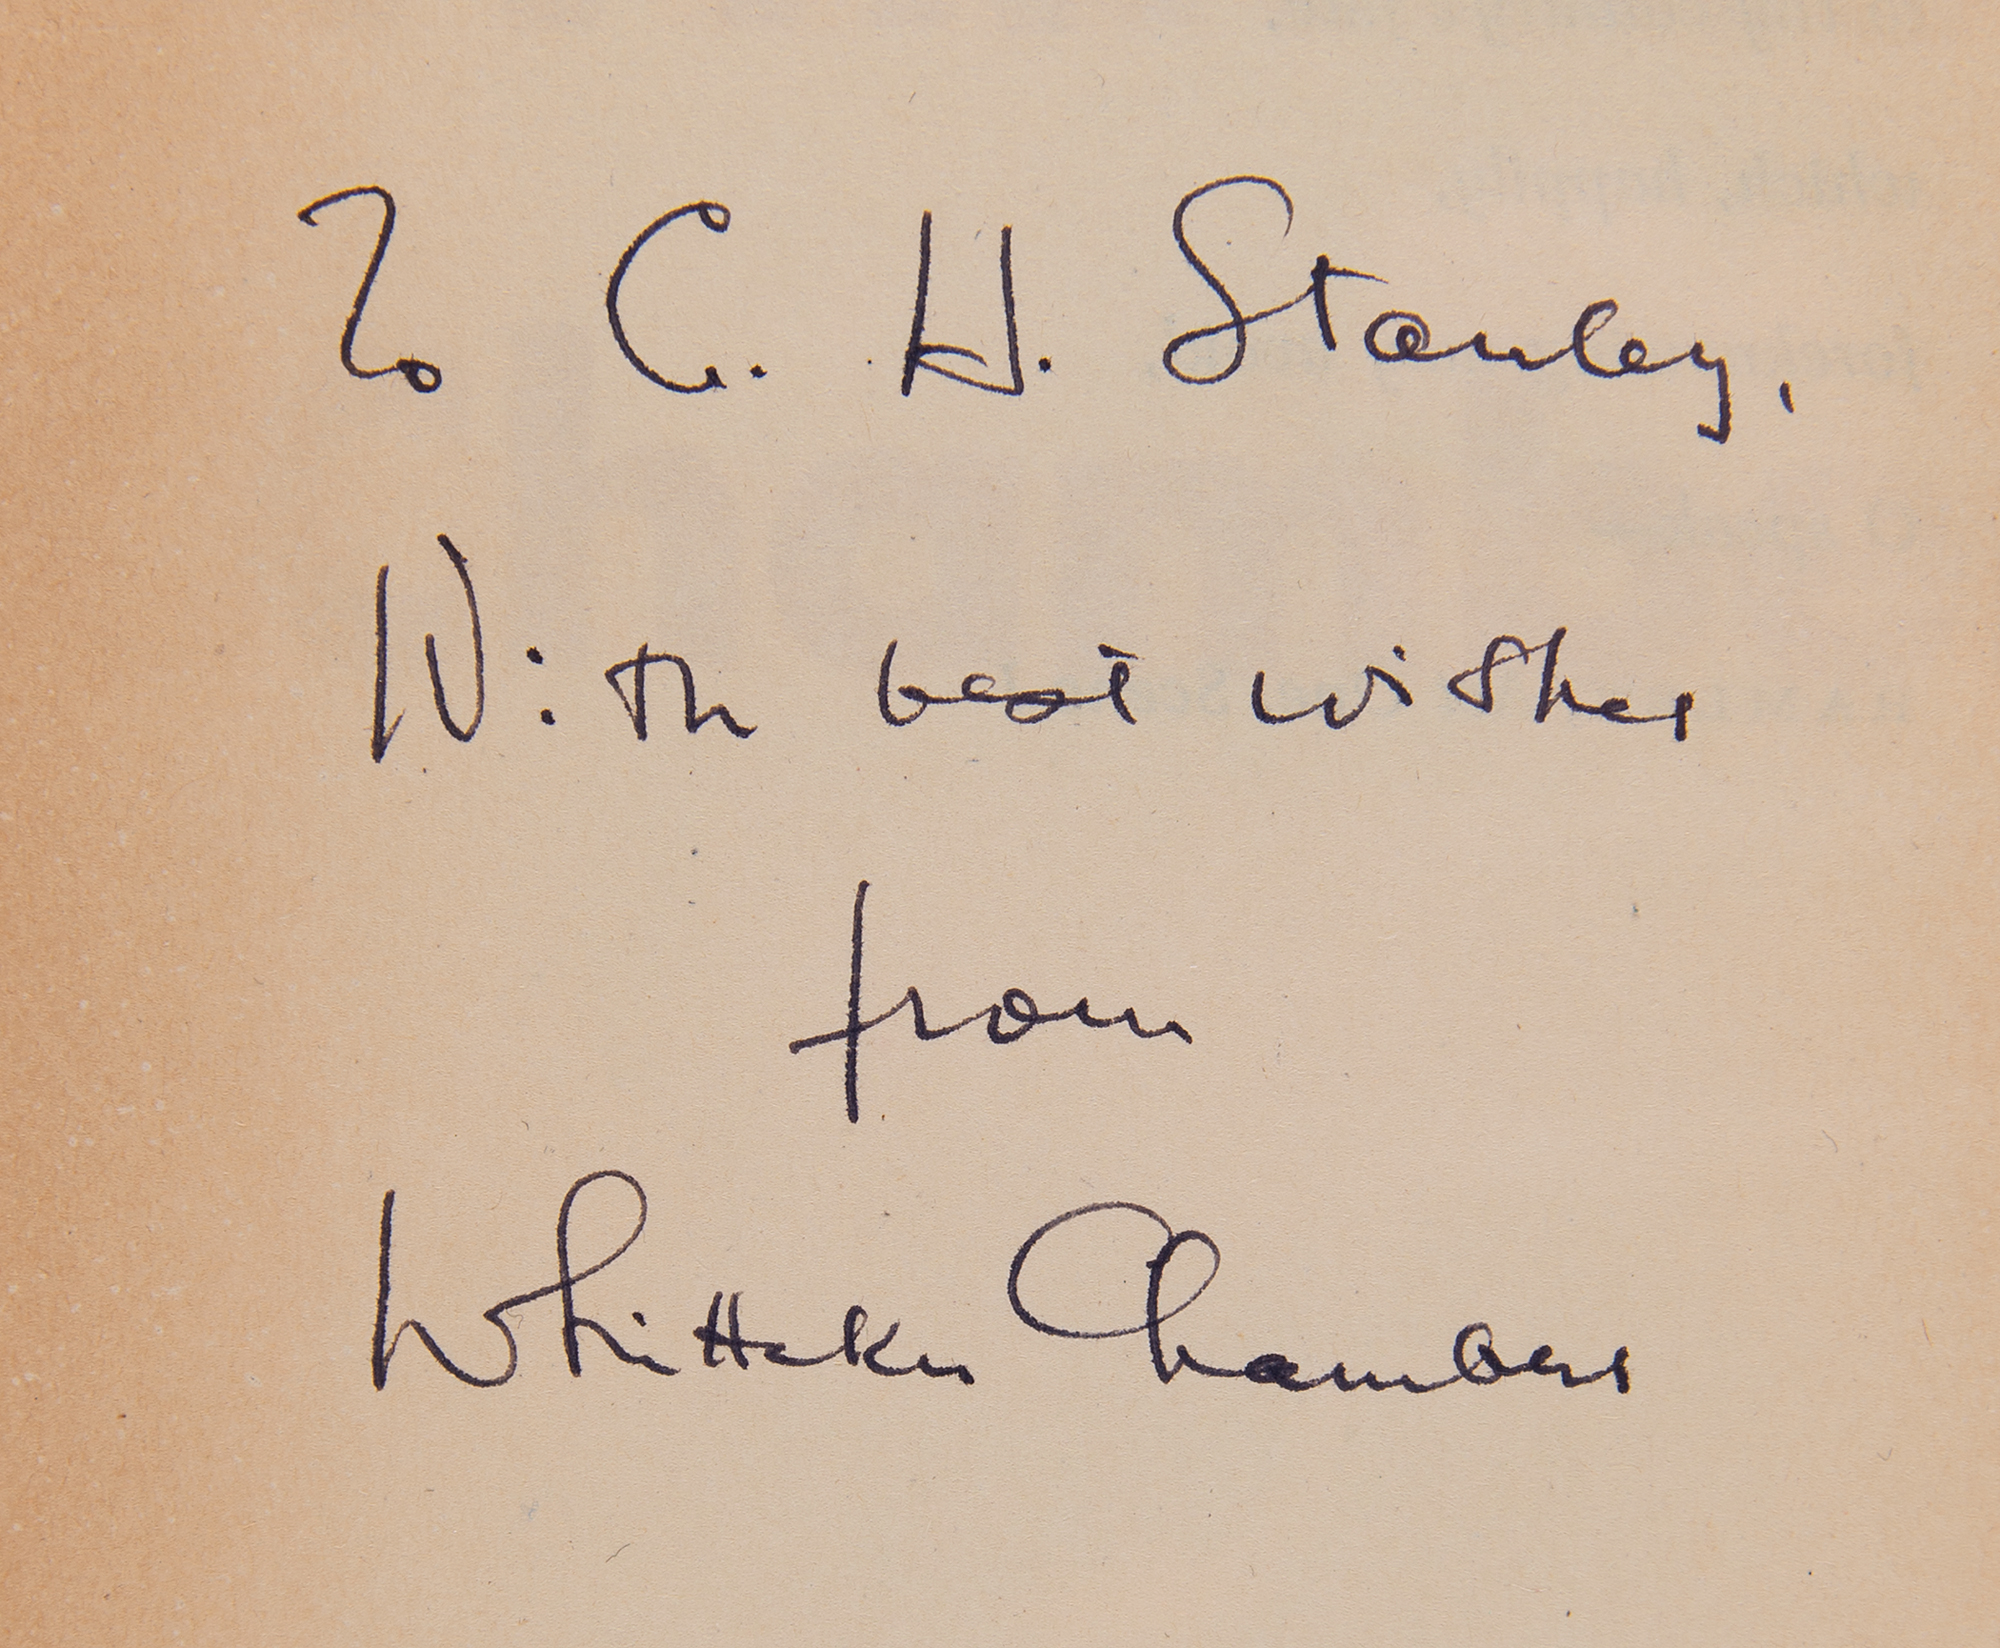 To C. H. Stanley,
With best wishes
from
Whittaker Chambers